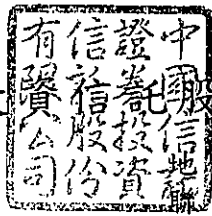 中國信託
證券投資
信託股份
有限公司
託
地聯